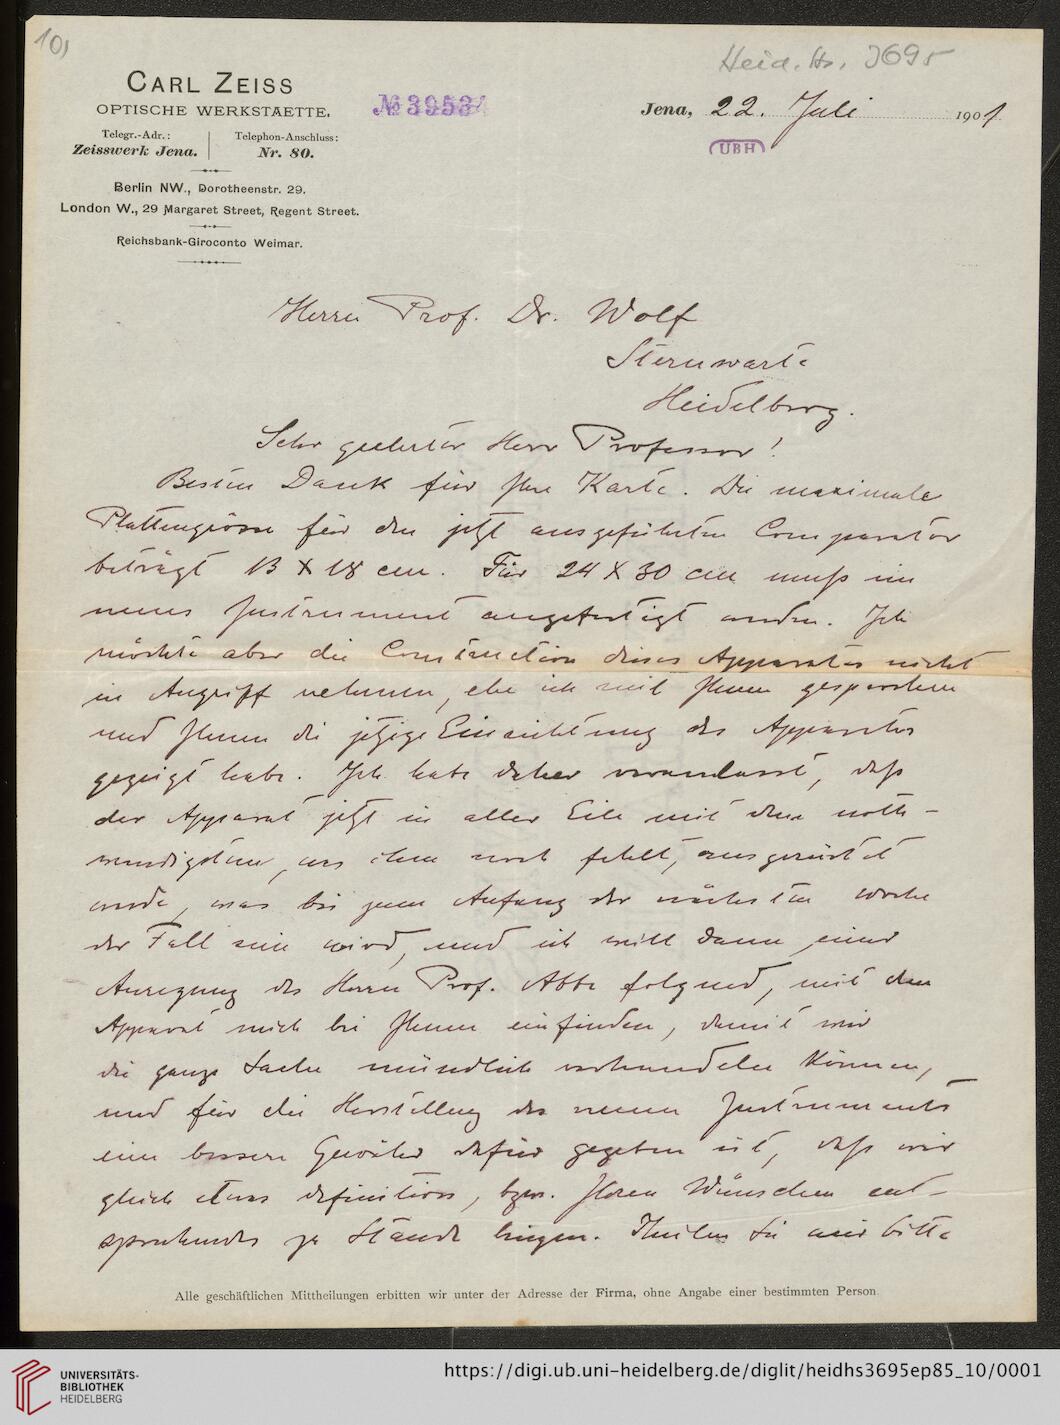 10)
Heid. Hs. 3695
CARL ZEISS
OPTISCHE WERKSTAETTE.
Telegr.-Adr.: Telephon-Anschluss:
Zeisswerk Jena. Nr. 80.
Berlin NW., Dorotheenstr. 29.
London W., 29 Margaret Street, Regent Street.
Reichsbank-Giroconto Weimar.
№ 3953
Jena, 22. Juli 1901
UBH
Herrn Prof. Dr. Wolf
Sternwarte
Heidelberg.
Sehr geehrter Herr Professor!
Besten Dank für Ihre Karte. Die maximale
Plattengrösse für den jetzt ausgeführten Comparator
beträgt 13 X 18 cm. Für 24 X 30 cm muß ein
neues Instrument angefertigt werden. Ich
möchte aber die Construction dieses Apparates nicht
in Angriff nehmen, ehe ich mit Ihnen gesprochen
und Ihnen die jetzige Einrichtung des Apparates
gezeigt habe. Ich habe daher veranlasst, daß
der Apparat jetzt in aller Eile mit dem noth-
wendigsten, was ihm noch fehlt, ausgerüstet
werde, was bis zum Anfang der nächsten Woche
der Fall sein wird, und ich will dann einer
Anregung des Herrn Prof. Abbe folgend, mit dem
Apparat mich bei Ihnen einfinden, damit wir
die ganze Sache mündlich verhandeln können,
und für die Herstellung des neuen Instruments
eine bessere Gewähr dafür gegeben ist, daß wir
gleich etwas definitives, bzw. Ihren Wünschen ent-
sprechendes zu Stande bringen. Theilen Sie mir bitte
Alle geschäftlichen Mittheilungen erbitten wir unter der Adresse der Firma, ohne Angabe einer bestimmten Person.
UNIVERSITÄTS-
BIBLIOTHEK
HEIDELBERG
https://digi.ub.uni-heidelberg.de/diglit/heidhs3695ep85_10/0001